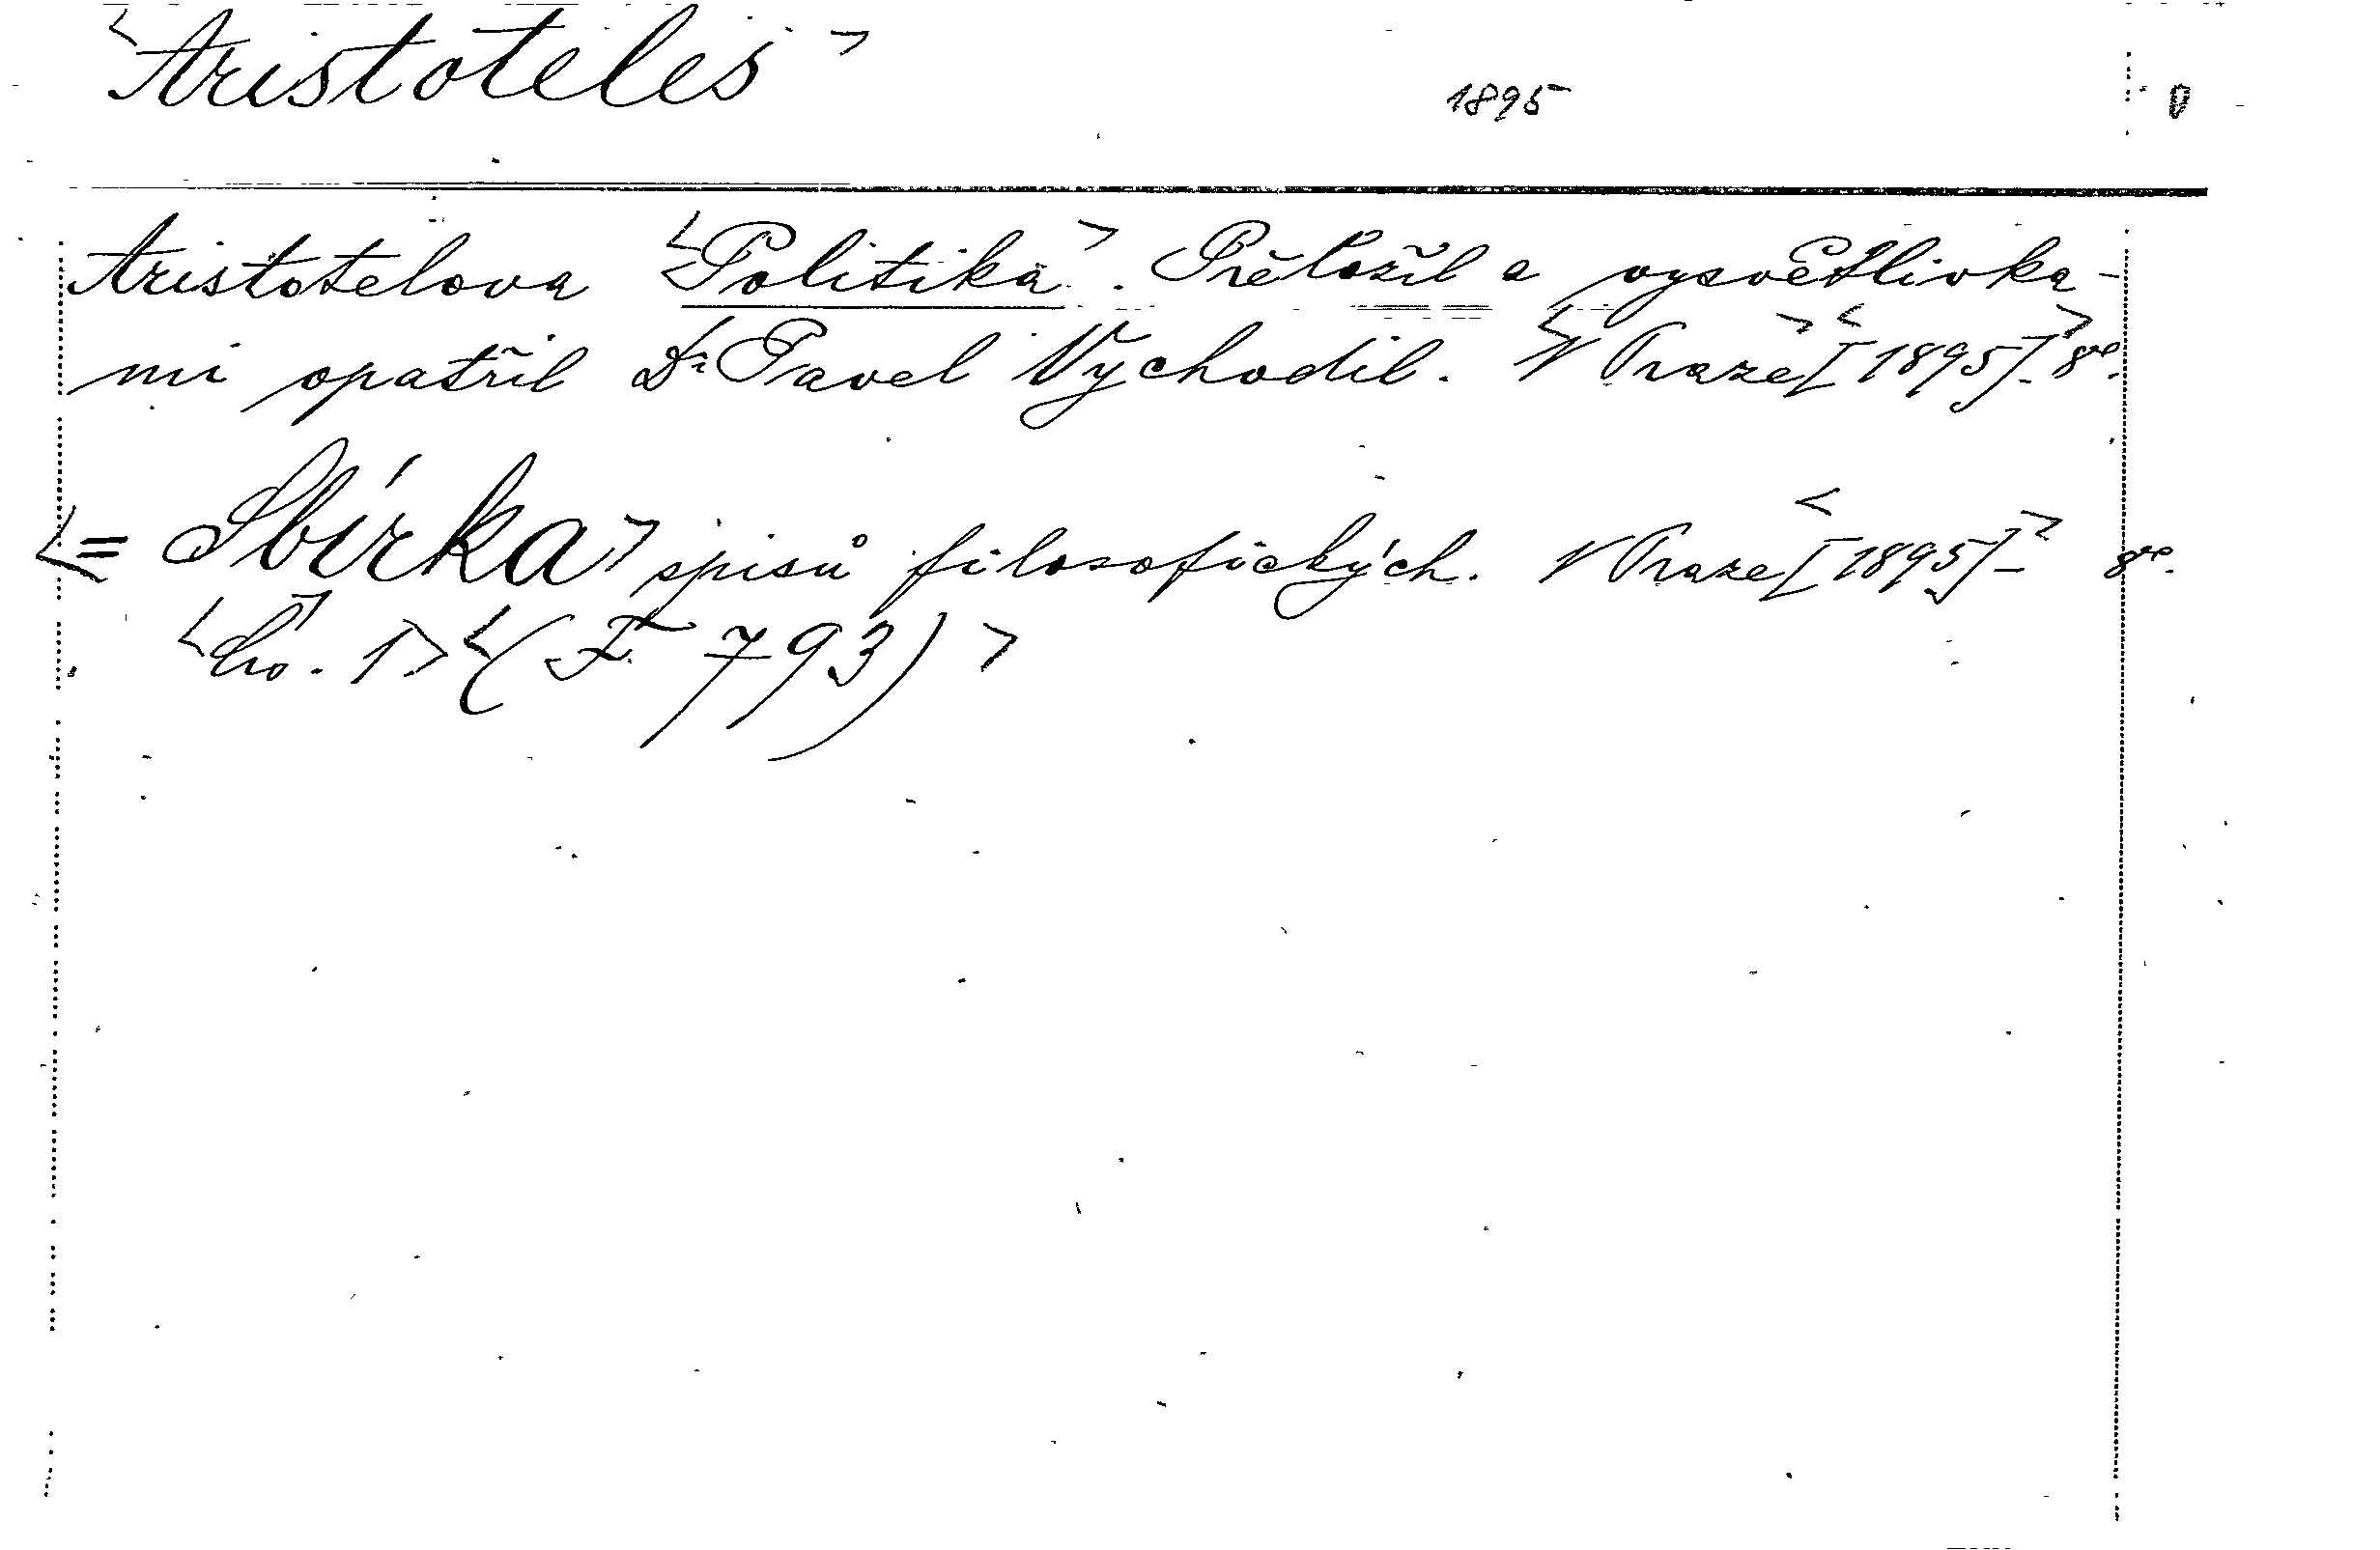 <Aristoteles> 1895
Aristotelova <Politika>. Přeložil a vysvětlivka-
mi opatřil Dr Pavel Vychodil. <V Praze> <[1895].> 8vo.
<= Sbírka> spisů filosofických. V Praze <[1895].> 8vo.
<1> <(F 793)>